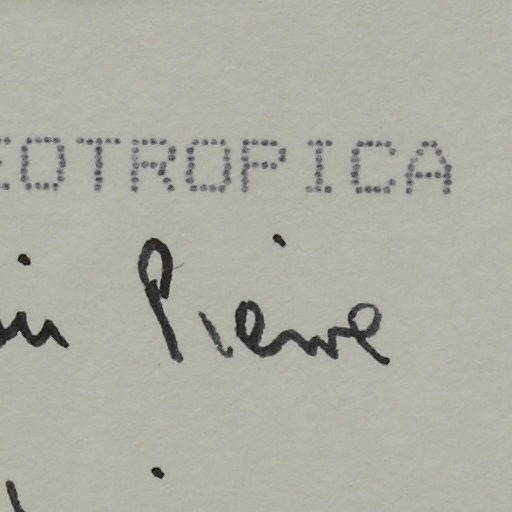 EOTROPICA
in Pierre